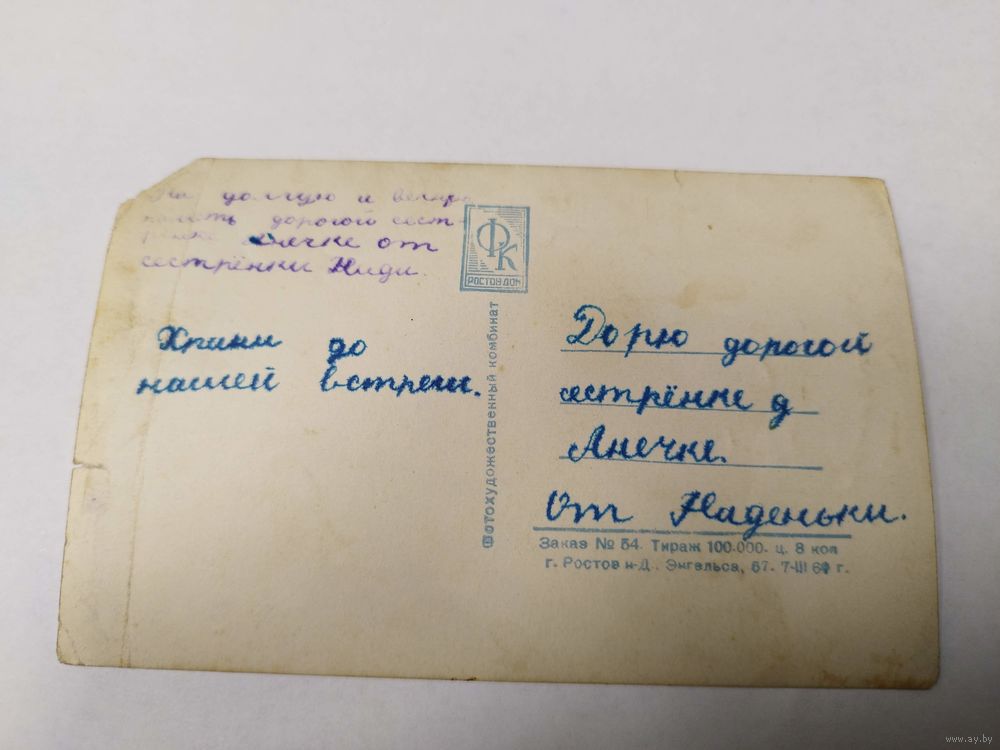 На долгую и вечную
память дорогой сест-
рёнке от
сестрёнки Нади.
Храни до
нашей встречи.
ФК
РОСТОВ ДОН
Фотохудожественный комбинат
Дорю дорогой
сестрёнке д
Анечке.
От Наденьки.
Заказ № 54. Тираж 100.000. ц. 8 коп
г. Ростов н-Д. Энгельса, 67. 7-III г.
www.ay.by